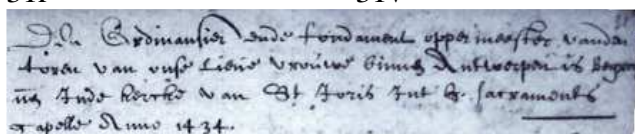 Den Ordinansier ende fondament oppermeester vanden
toren van onse Lieve vrouwe binnen Antwerpen is begra
inde kercke van St Joris int h. sacraments
capelle Anno 1434.